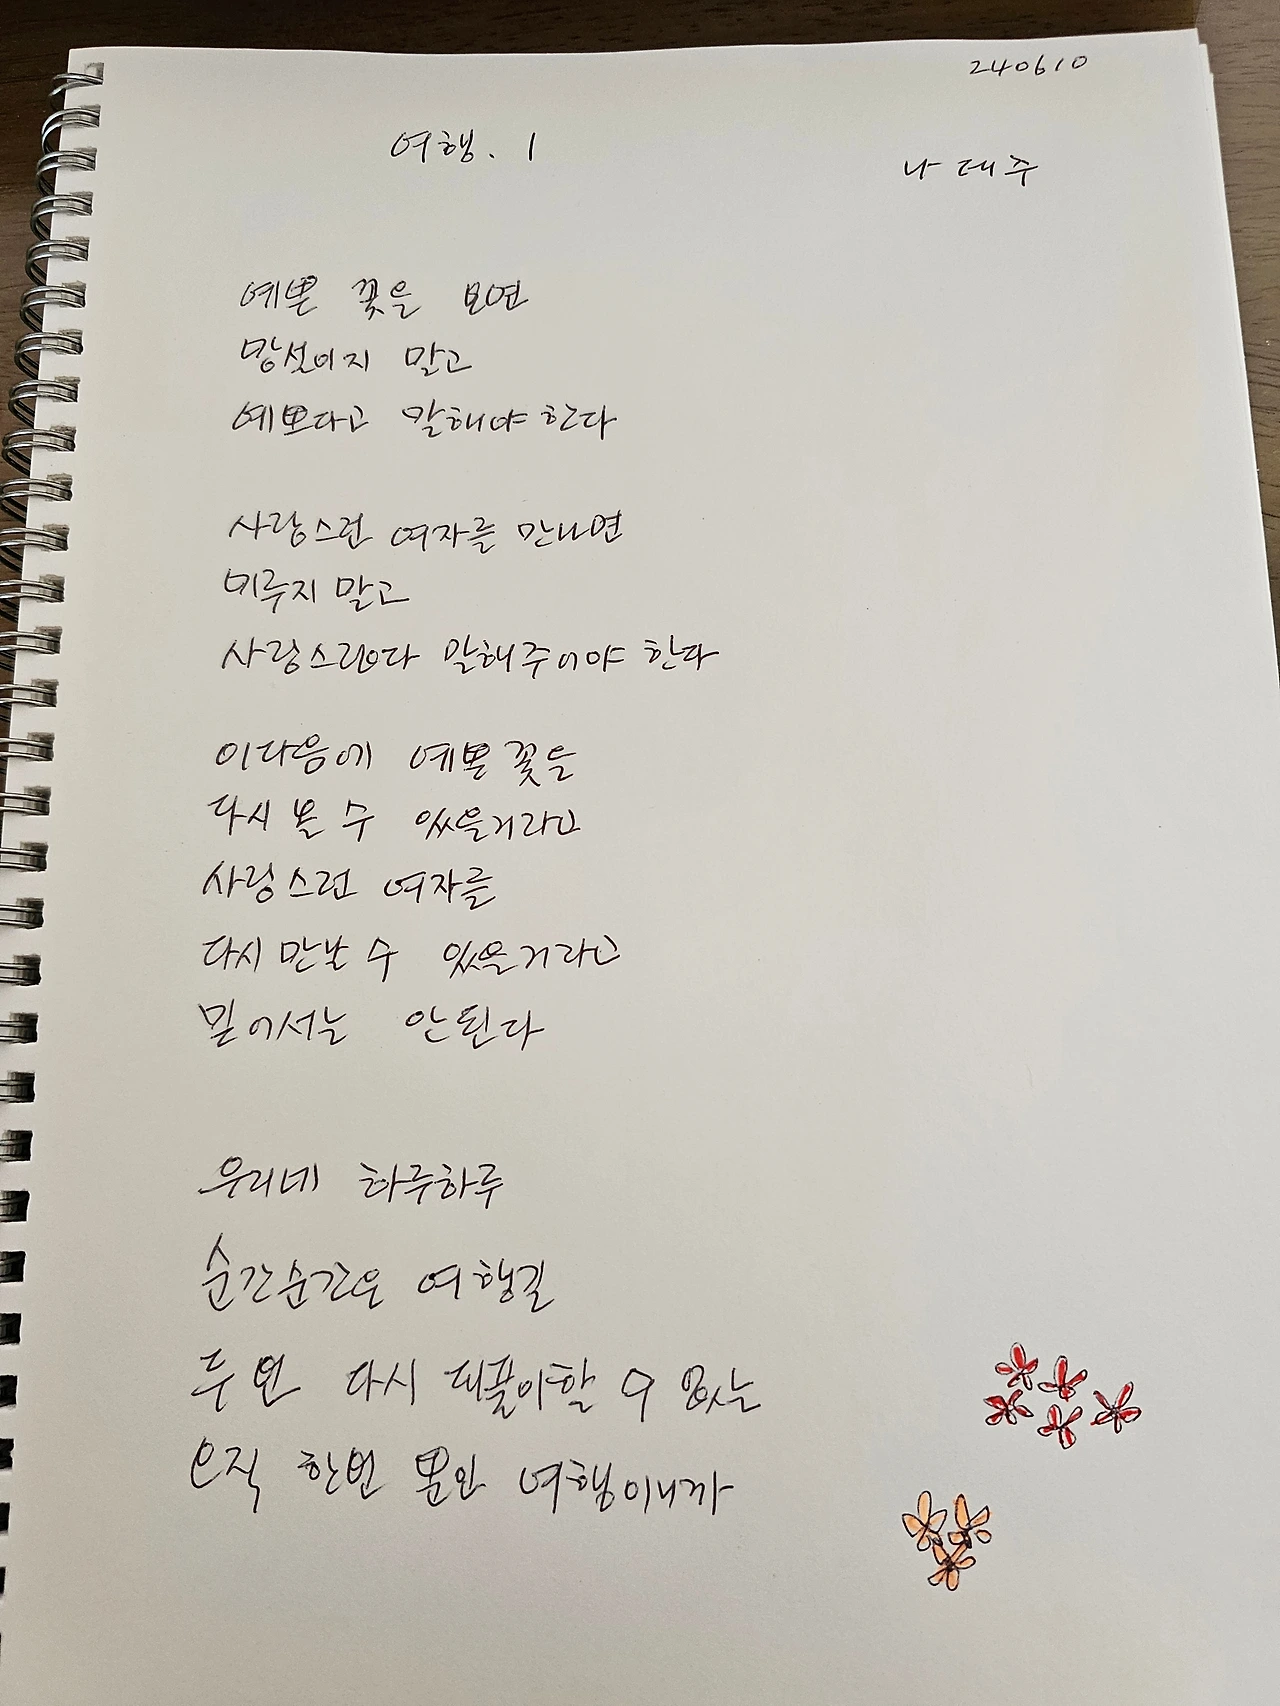 240610
여행. 1
나태주
예쁜 꽃을 보면
망설이지 말고
예쁘다고 말해야 한다
사랑스런 여자를 만나면
미루지 말고
사랑스럽다 말해주어야 한다
이다음에 예쁜 꽃을
다시 볼 수 있을거라고
사랑스런 여자를
다시 만날 수 있을거라고
믿어서는 안된다
우리네 하루하루
순간순간은 여행길
두 번 다시 되풀이할 수 없는
오직 한번 뿐인 여행이니까